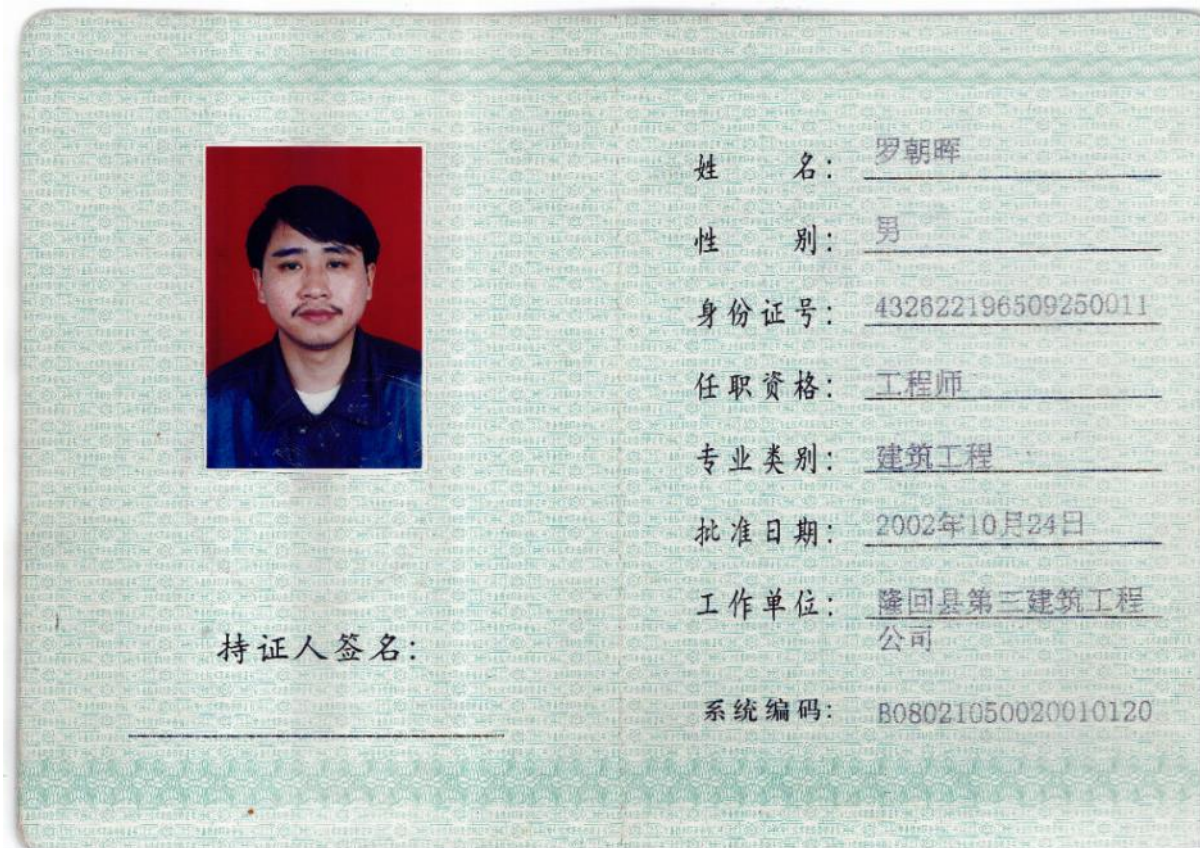 持证人签名：
姓名： 罗朝晖
性别： 男
身份证号： 432622196509250011
任职资格： 工程师
专业类别： 建筑工程
批准日期： 2002年10月24日
工作单位： 隆回县第三建筑工程
公司
系统编码： B08021050020010120